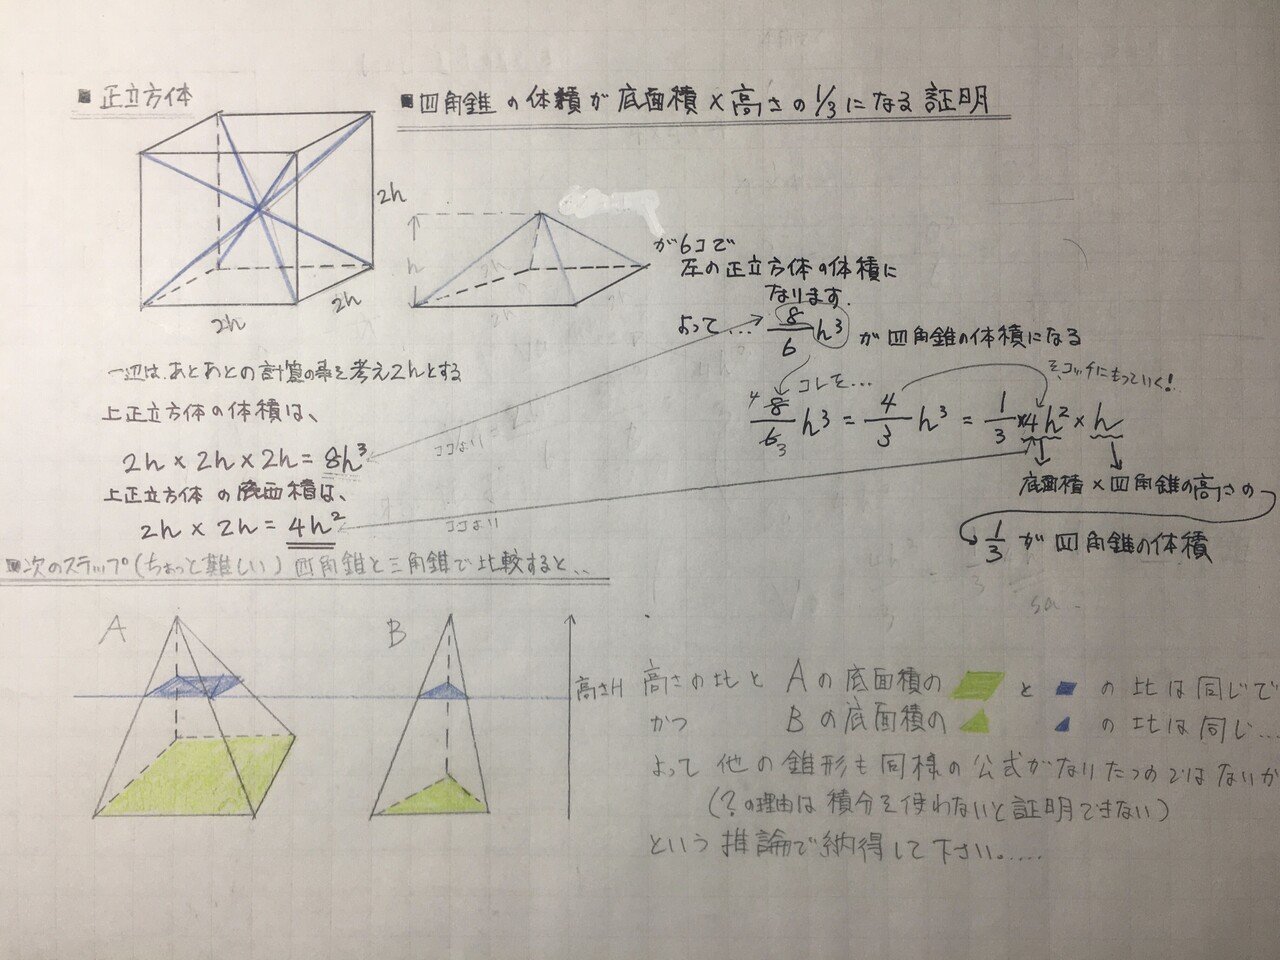 ■正立方体
■四角錐の体積が底面積×高さの1/3になる証明
2h
2h
2h
h
2h
2h
が6コで
左の正立方体の体積に
なります.
よって… 8/6 h³ が四角錐の体積になる
コレを…
そ、コッチにもっていく!
4 8/6 3 h³ = 4/3 h³ = 1/3 × 4h² × h
底面積×四角錐の高さの
1/3 が四角錐の体積
一辺は、あとあとの計算の事を考え2hとする
上正立方体の体積は、
2h × 2h × 2h = 8h³
ココより
上正立方体の底面積は、
2h × 2h = 4h²
ココより
■次のステップ(ちょっと難しい)四角錐と三角錐で比較すると...
A
B
高さH
高さの比と Aの底面積の と の比は同じで
かつ Bの底面積の の比は同じ…
よって他の錐形も同様の公式がなりたつのではないか
(?の理由は積分を使わないと証明できない)
という推論で納得して下さい。.....